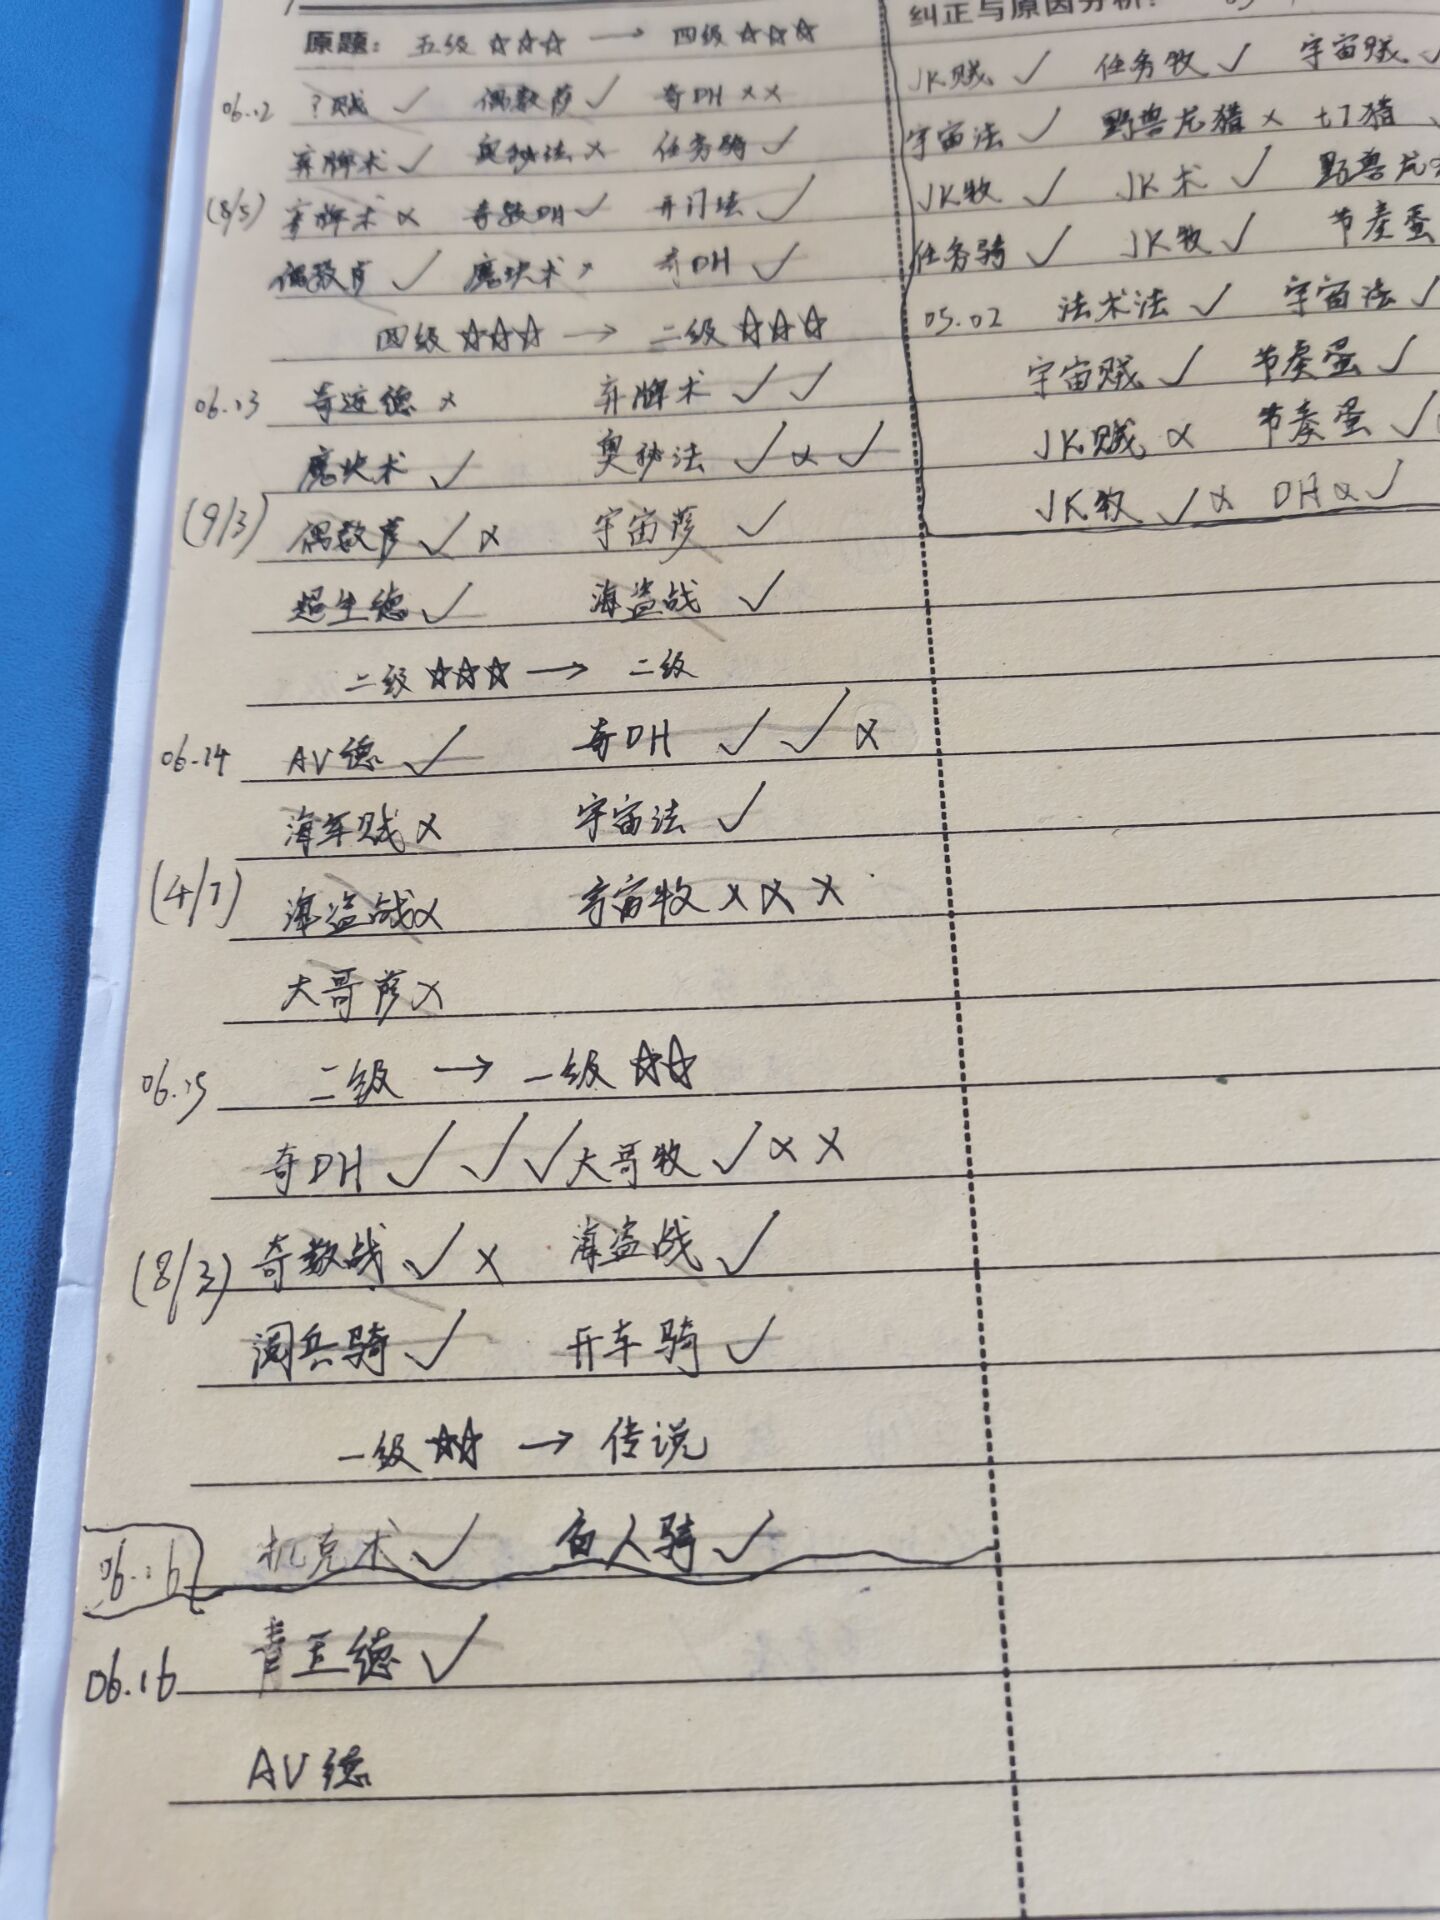 原题: 五级 ☆☆☆ → 四级 ☆☆☆
06.12 ?贼 ✓ 偶数萨 ✓ 奇DH × ×
弃牌术 ✓ 奥秘法 × 任务骑 ✓
(8/5) 弃牌术 × 奇数DH ✓ 开门法 ✓
偶数萨 ✓ 魔块术 × 奇DH ✓
四级 ☆☆☆ → 二级 ☆☆☆
06.13 奇迹德 × 弃牌术 ✓ ✓
魔块术 ✓ 奥秘法 ✓ × ✓
(9/3) 偶数萨 ✓ × 宇宙萨 ✓
超生德 ✓ 海盗战 ✓
二级 ☆☆☆ → 二级
06.14 AV德 ✓ 奇DH ✓ ✓ ×
海军贼 × 宇宙法 ✓
(4/7) 海盗战 × 宇宙牧 × × ×
大哥萨 ×
06.15 二级 → 一级 ☆☆
奇DH ✓ ✓ ✓ 大哥牧 ✓ × ×
(8/3) 奇数战 ✓ × 海盗战 ✓
阅兵骑 ✓ 开车骑 ✓
一级 ☆☆ → 传说
06.16 机克术 ✓ 鱼人骑 ✓
06.16 青玉德 ✓
AV德
纠正与原因分析:
JK贼 ✓ 任务牧 ✓ 宇宙贼 ✓
宇宙法 ✓ 野兽龙猎 × T7猎
JK牧 ✓ JK术 ✓ 野兽龙
任务骑 ✓ JK牧 ✓ 节奏蛋
05.02 法术法 ✓ 宇宙法 ✓
宇宙贼 ✓ 节奏蛋 ✓
JK贼 × 节奏蛋 ✓
JK牧 ✓ × DH × ✓